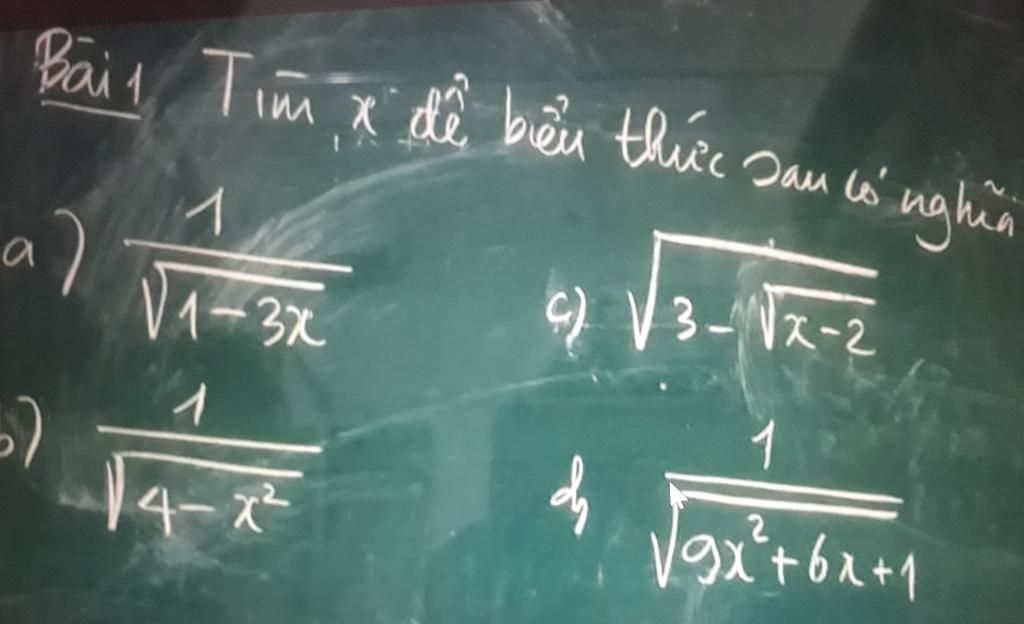 Bài 1 Tìm x để biểu thức sau có nghĩa
a) 1/√(1-3x)
c) √(3-√(x-2))
b) 1/√(4-x²)
d) 1/√(9x²+6x+1)